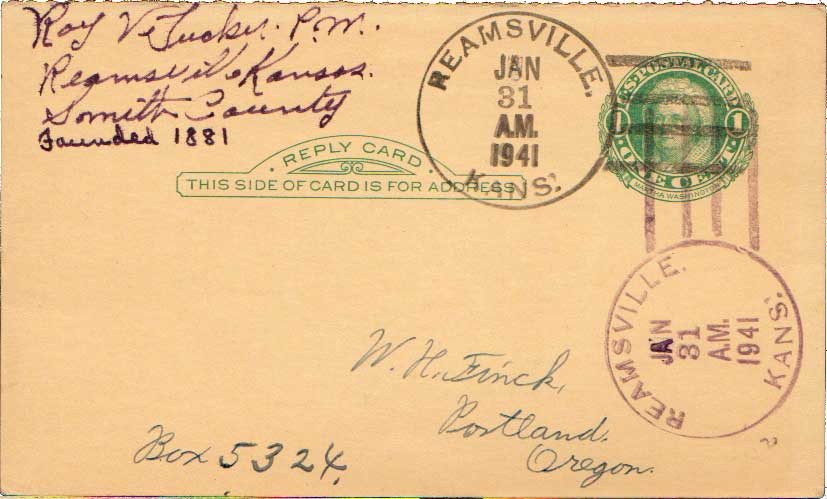 Roy V. Tucker. P.M.
Reamsville Kansas.
Smith County
Founded 1881
REPLY CARD
THIS SIDE OF CARD IS FOR ADDRESS
REAMSVILLE,
JAN
31
A.M.
1941
KANS.
U.S. POSTAL CARD
1 1
ONE CENT
MARTHA WASHINGTON
REAMSVILLE.
JAN
31
A.M.
1941
KANS.
W. H. Finck,
Portland.
Oregon.
Box 5324.